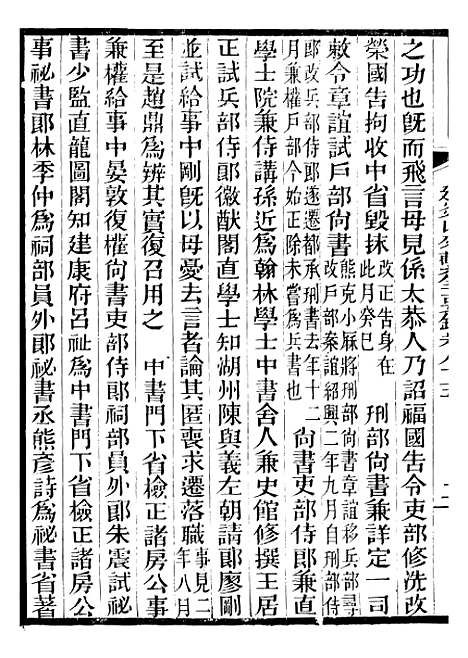 之功也旣而飛言母見係太恭人乃詔福國告令吏部修洗改
榮國告拘收中省毀抹改正告身在此月癸巳　刑部尚書兼詳定一司
敕令章誼試戶部尚書熊克小厯將刑部尚書章誼移兵部尋改戶部案誼紹興二年九月自刑部侍
郞改兵部侍郞遂遷都承刑書去年十二月兼權戶部今始正除未嘗爲兵書也　尚書吏部侍郞兼直
學士院兼侍講孫近爲翰林學士中書舍人兼史館修撰王居
正試兵部侍郞徽猷閣直學士知湖州陳與義左朝請郞廖剛
並試給事中剛旣以母憂去言者論其匿喪求遷落職事見二年八月
至是趙鼎爲辨其實復召用之　中書門下省檢正諸房公事
兼權給事中晏敦復權尚書吏部侍郞祠部員外郞朱震試祕
書少監直龍圖閣知建康府呂祉爲中書門下省檢正諸房公
事祕書郞林季仲爲祠部員外郞祕書丞熊彥詩爲祕書省著